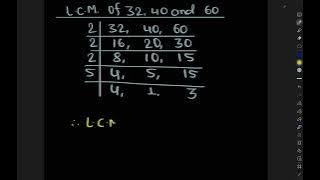 L.C.M. of 32, 40 and 60
2 | 32, 40, 60
2 | 16, 20, 30
2 | 8, 10, 15
5 | 4, 5, 15
4, 1, 3
∴ L.C.M